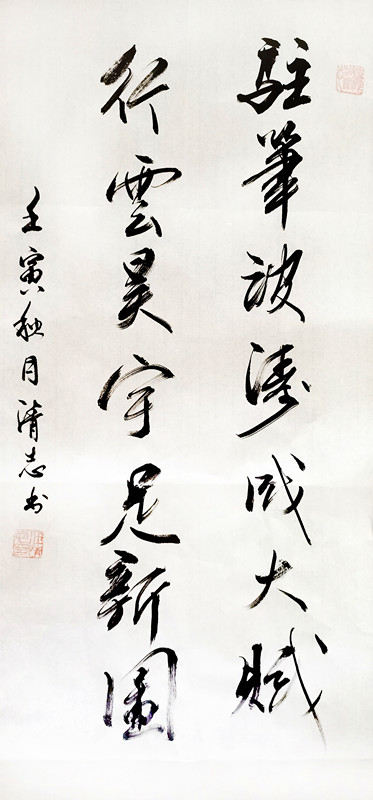 駐筆波濤成大賦
行雲昊宇足新圖
壬寅秋月清志书